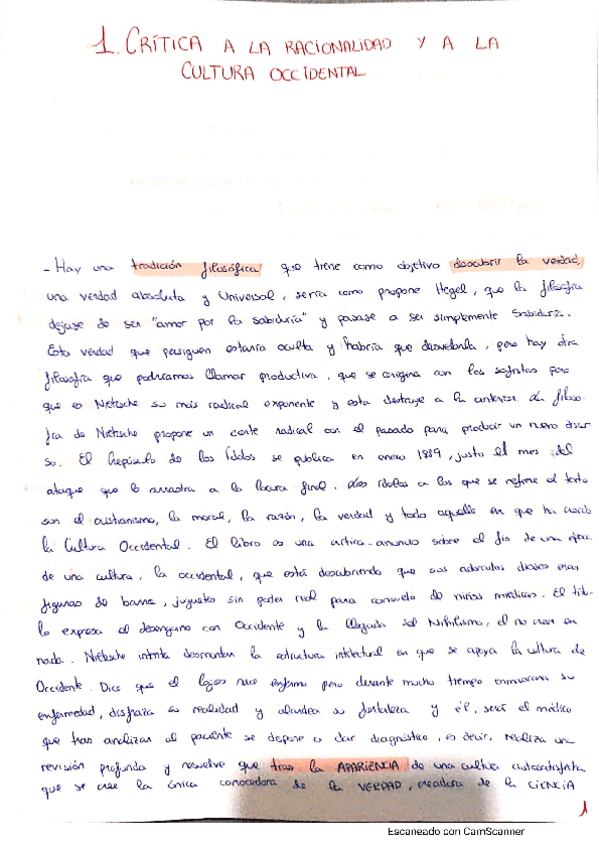 1. CRÍTICA A LA RACIONALIDAD Y A LA
CULTURA OCCIDENTAL
- Hay una tradición filosófica que tiene como objetivo descubrir la verdad,
una verdad absoluta y Universal, sería como propone Hegel, que la filosofía
dejase de ser "amor por la sabiduría" y pasase a ser simplemente Sabiduría.
Esta verdad que persiguen estaría oculta y habría que desvelarla, pero hay otra
filosofía que podríamos llamar productiva, que se origina con los sofistas pero
que es Nietzsche su más radical exponente y esta destruye a la anterior. La filoso-
fía de Nietzsche propone un corte radical con el pasado para producir un nuevo discur
so. El Crepúsculo de los Ídolos se publica en enero 1889, justo el mes del
ataque que lo arrastra a la locura final. Los ídolos a los que se refiere el texto
son el cristianismo, la moral, la razón, la verdad y todo aquello en que ha creído
la Cultura Occidental. El libro es una crítica-anuncio sobre el fin de una época
de una cultura, la occidental, que está descubriendo que sus adorados dioses eran
figuras de barro, juguetes sin poder real para consuelo de niños miedicas. El títu-
lo expresa el desengaño con Occidente y la llegada del Nihilismo, el no creer en
nada. Nietzsche intenta desmontar la estructura intelectual en que se apoya la cultura de
Occidente. Dice que el logos nace enfermo pero durante mucho tiempo enmascara su
enfermedad, disfraza su realidad y alardea su fortaleza y él, será el médico
que tras analizar al paciente se dispone a dar diagnóstico, es decir, realiza una
revisión profunda y resuelve que tras la APARIENCIA de una cultura
que se cree la única conocedora de la VERDAD, creadora de la CIENCIA
1
Escaneado con CamScanner